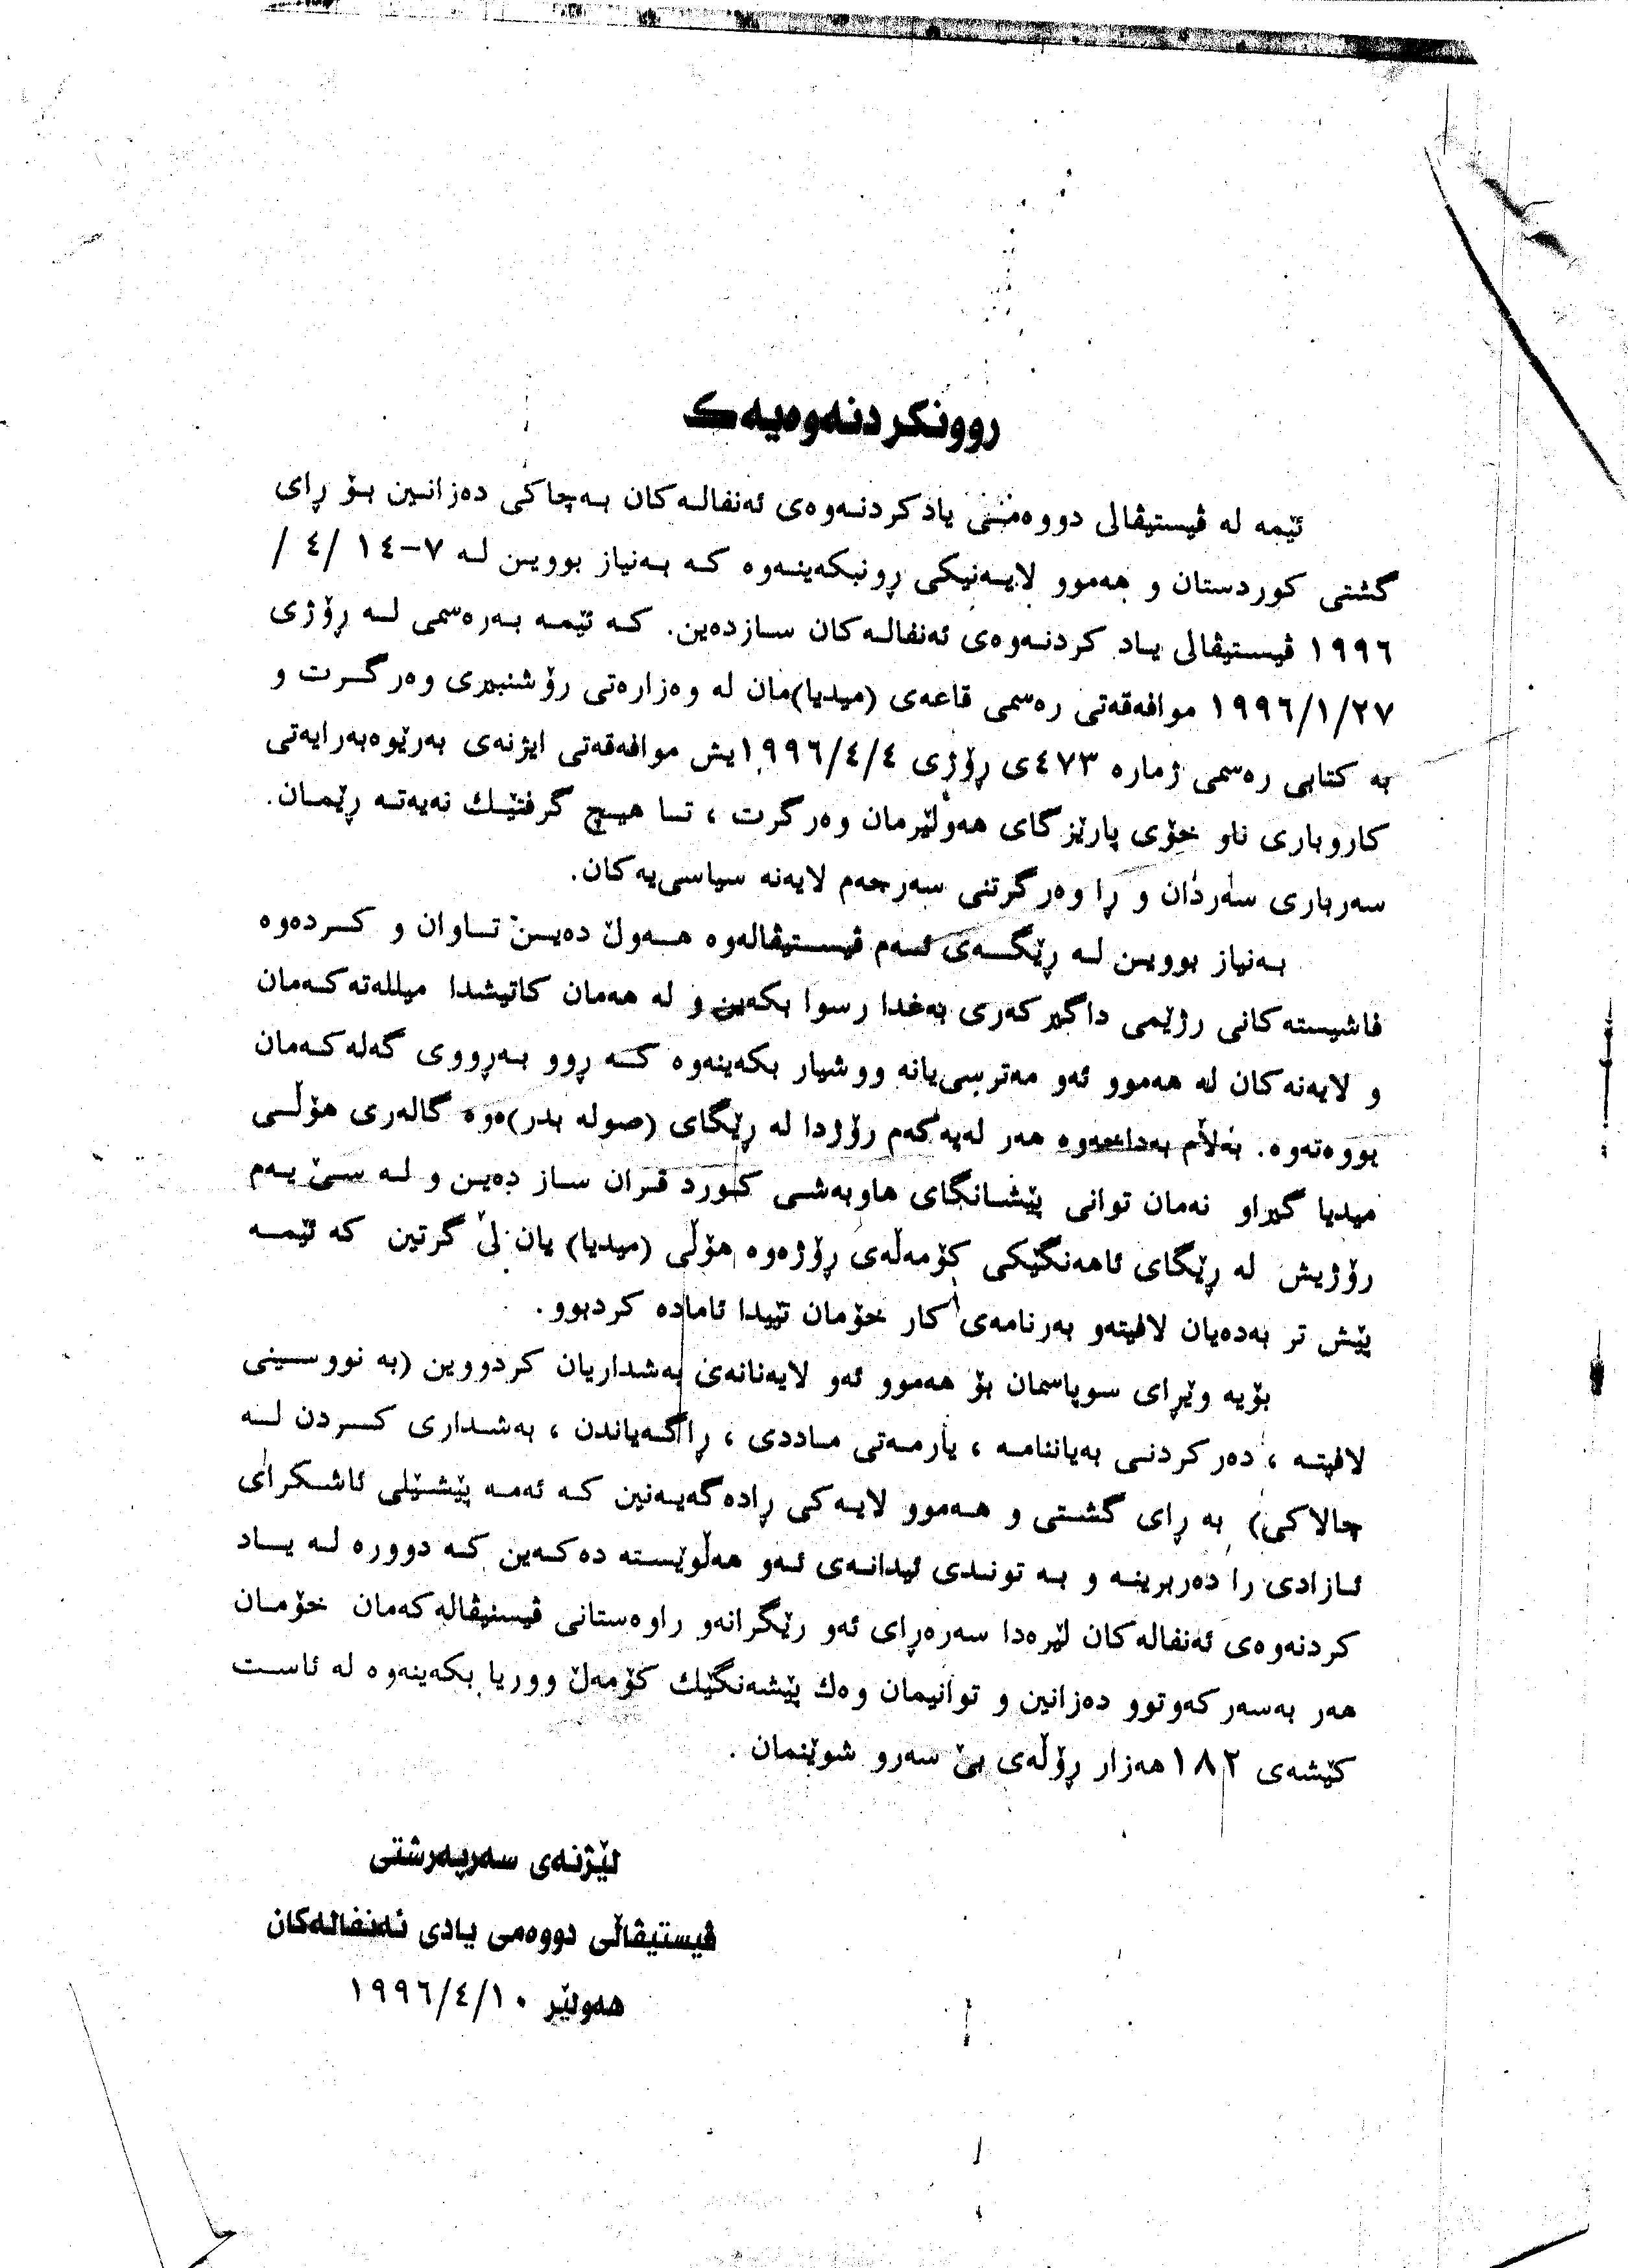 روونکردنەوەیەک
ئێمە لە ڤیستیڤالی دووەمینی یادکردنەوەی ئەنفالەکان بەچاکی دەزانین بۆ ڕای
گشتی کوردستان و هەموو لایەنیکی ڕونبکەینەوە کە بەنیاز بووین لە ٧-١٤ /٤ /
١٩٩٦ ڤیستیڤالی یاد کردنەوەی ئەنفالەکان سازدەین. کە ئێمە بەرەسمی لە ڕۆژی
١٩٩٦/١/٢٧ موافەقەتی رەسمی قاعەی (میدیا)مان لە وەزارەتی رۆشنبیری وەرگرت و
بە کتابی رەسمی ژمارە ٤٧٣ی ڕۆژی ١٩٩٦/٤/٤یش موافەقەتی ایژنەی بەرێوەبەرایەتی
کاروباری ناو خۆی پارێزگای هەولێرمان وەرگرت ، تا هیچ گرفتێك نەیەتە ڕێمان.
سەرباری سەردان و ڕا وەرگرتنی سەرجەم لایەنە سیاسی‌یەکان.
بەنیاز بووین لە ڕێگەی ئەم ڤیستیڤالەوە هەوڵ دەین تاوان و کردەوە
فاشیستەکانی رژێمی داگیرکەری بەغدا رسوا بکەین و لە هەمان کاتیشدا میللەتەکەمان
و لایەنەکان لە هەموو ئەو مەترسی‌یانە ووشیار بکەینەوە کە ڕوو بەڕووی گەلەکەمان
بووەتەوە. بەڵام بەداخەوە هەر لەیەکەم رۆژدا لە ڕێگای (صولە بدر)ەوە گالەری هۆڵی
میدیا گیراو نەمان توانی پێشانگای هاوبەشی کورد قران ساز دەین و لە سێ یەم
رۆژیش لە ڕێگای ئاهەنگێکی کۆمەڵەی ڕۆژەوە هۆڵی (میدیا) یان لێ گرتین کە ئێمە
پێش تر بەدەیان لافیتەو بەرنامەی کار خۆمان تێیدا ئامادە کردبوو.
بۆیە وێڕای سوپاسمان بۆ هەموو ئەو لایەنانەی بەشداریان کردووین (بە نووسینی
لافیتە ، دەرکردنی بەیاننامە ، یارمەتی ماددی ، ڕاگەیاندن ، بەشداری کردن لە
چالاکی) بە ڕای گشتی و هەموو لایەکی ڕادەگەیەنین کە ئەمە پێشێلی ئاشکرای
ئازادی را دەربرینە و بە توندی ئیدانەی ئەو هەڵوێستە دەکەین کە دوورە لە یاد
کردنەوەی ئەنفالەکان لێرەدا سەرەڕای ئەو رێگرانەو راوەستانی ڤیستیڤالەکەمان خۆمان
هەر بەسەرکەوتوو دەزانین و توانیمان وەك پێشەنگێك کۆمەڵ ووریا بکەینەوە لە ئاست
کێشەی ١٨٢هەزار ڕۆڵەی بێ سەرو شوێنمان .
لێژنەی سەرپەرشتی
ڤیستیڤاڵی دووەمی یادی ئەنفالەکان
هەولێر ١٩٩٦/٤/١٠